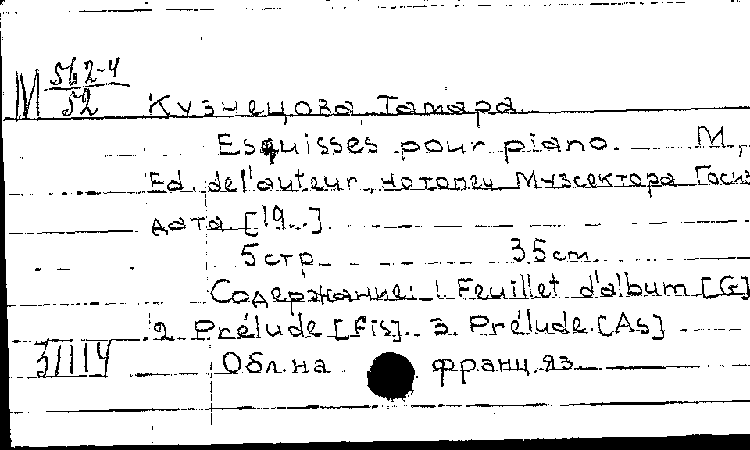 М 562-4/52
Кузнецова, Тамара
Esquisses pour piano. М.,
Ed. de l'auteur, нотопеч Музсектора Госиз
дата [19..]
5 стр. 35 cm.
Содержание: 1. Feuillet d'album [G]
2. Prélude [Fis]. 3. Prélude [As]
31114 Обл. на франц. яз.